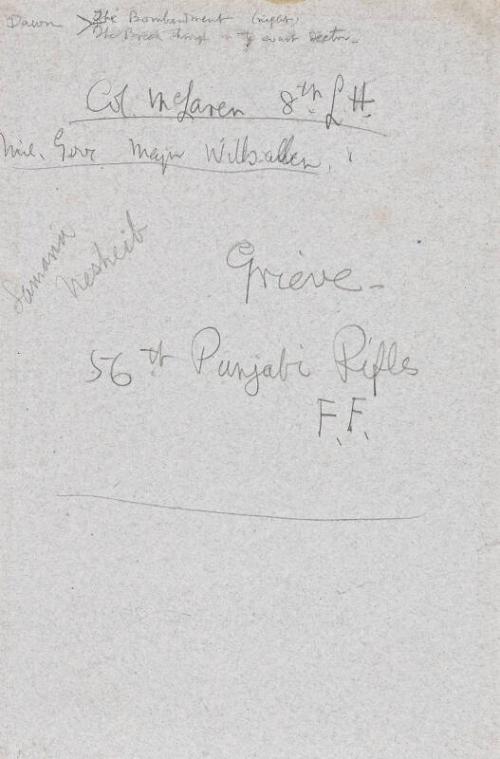 Dawn > The Bombardment (night)
The Break through in the coast Sector
Col. McLaren 8th L H.
Mil. Gov. Major Wilballen.
Samann
Nesheib
Grieve -
56th Punjabi Rifles
F.F.